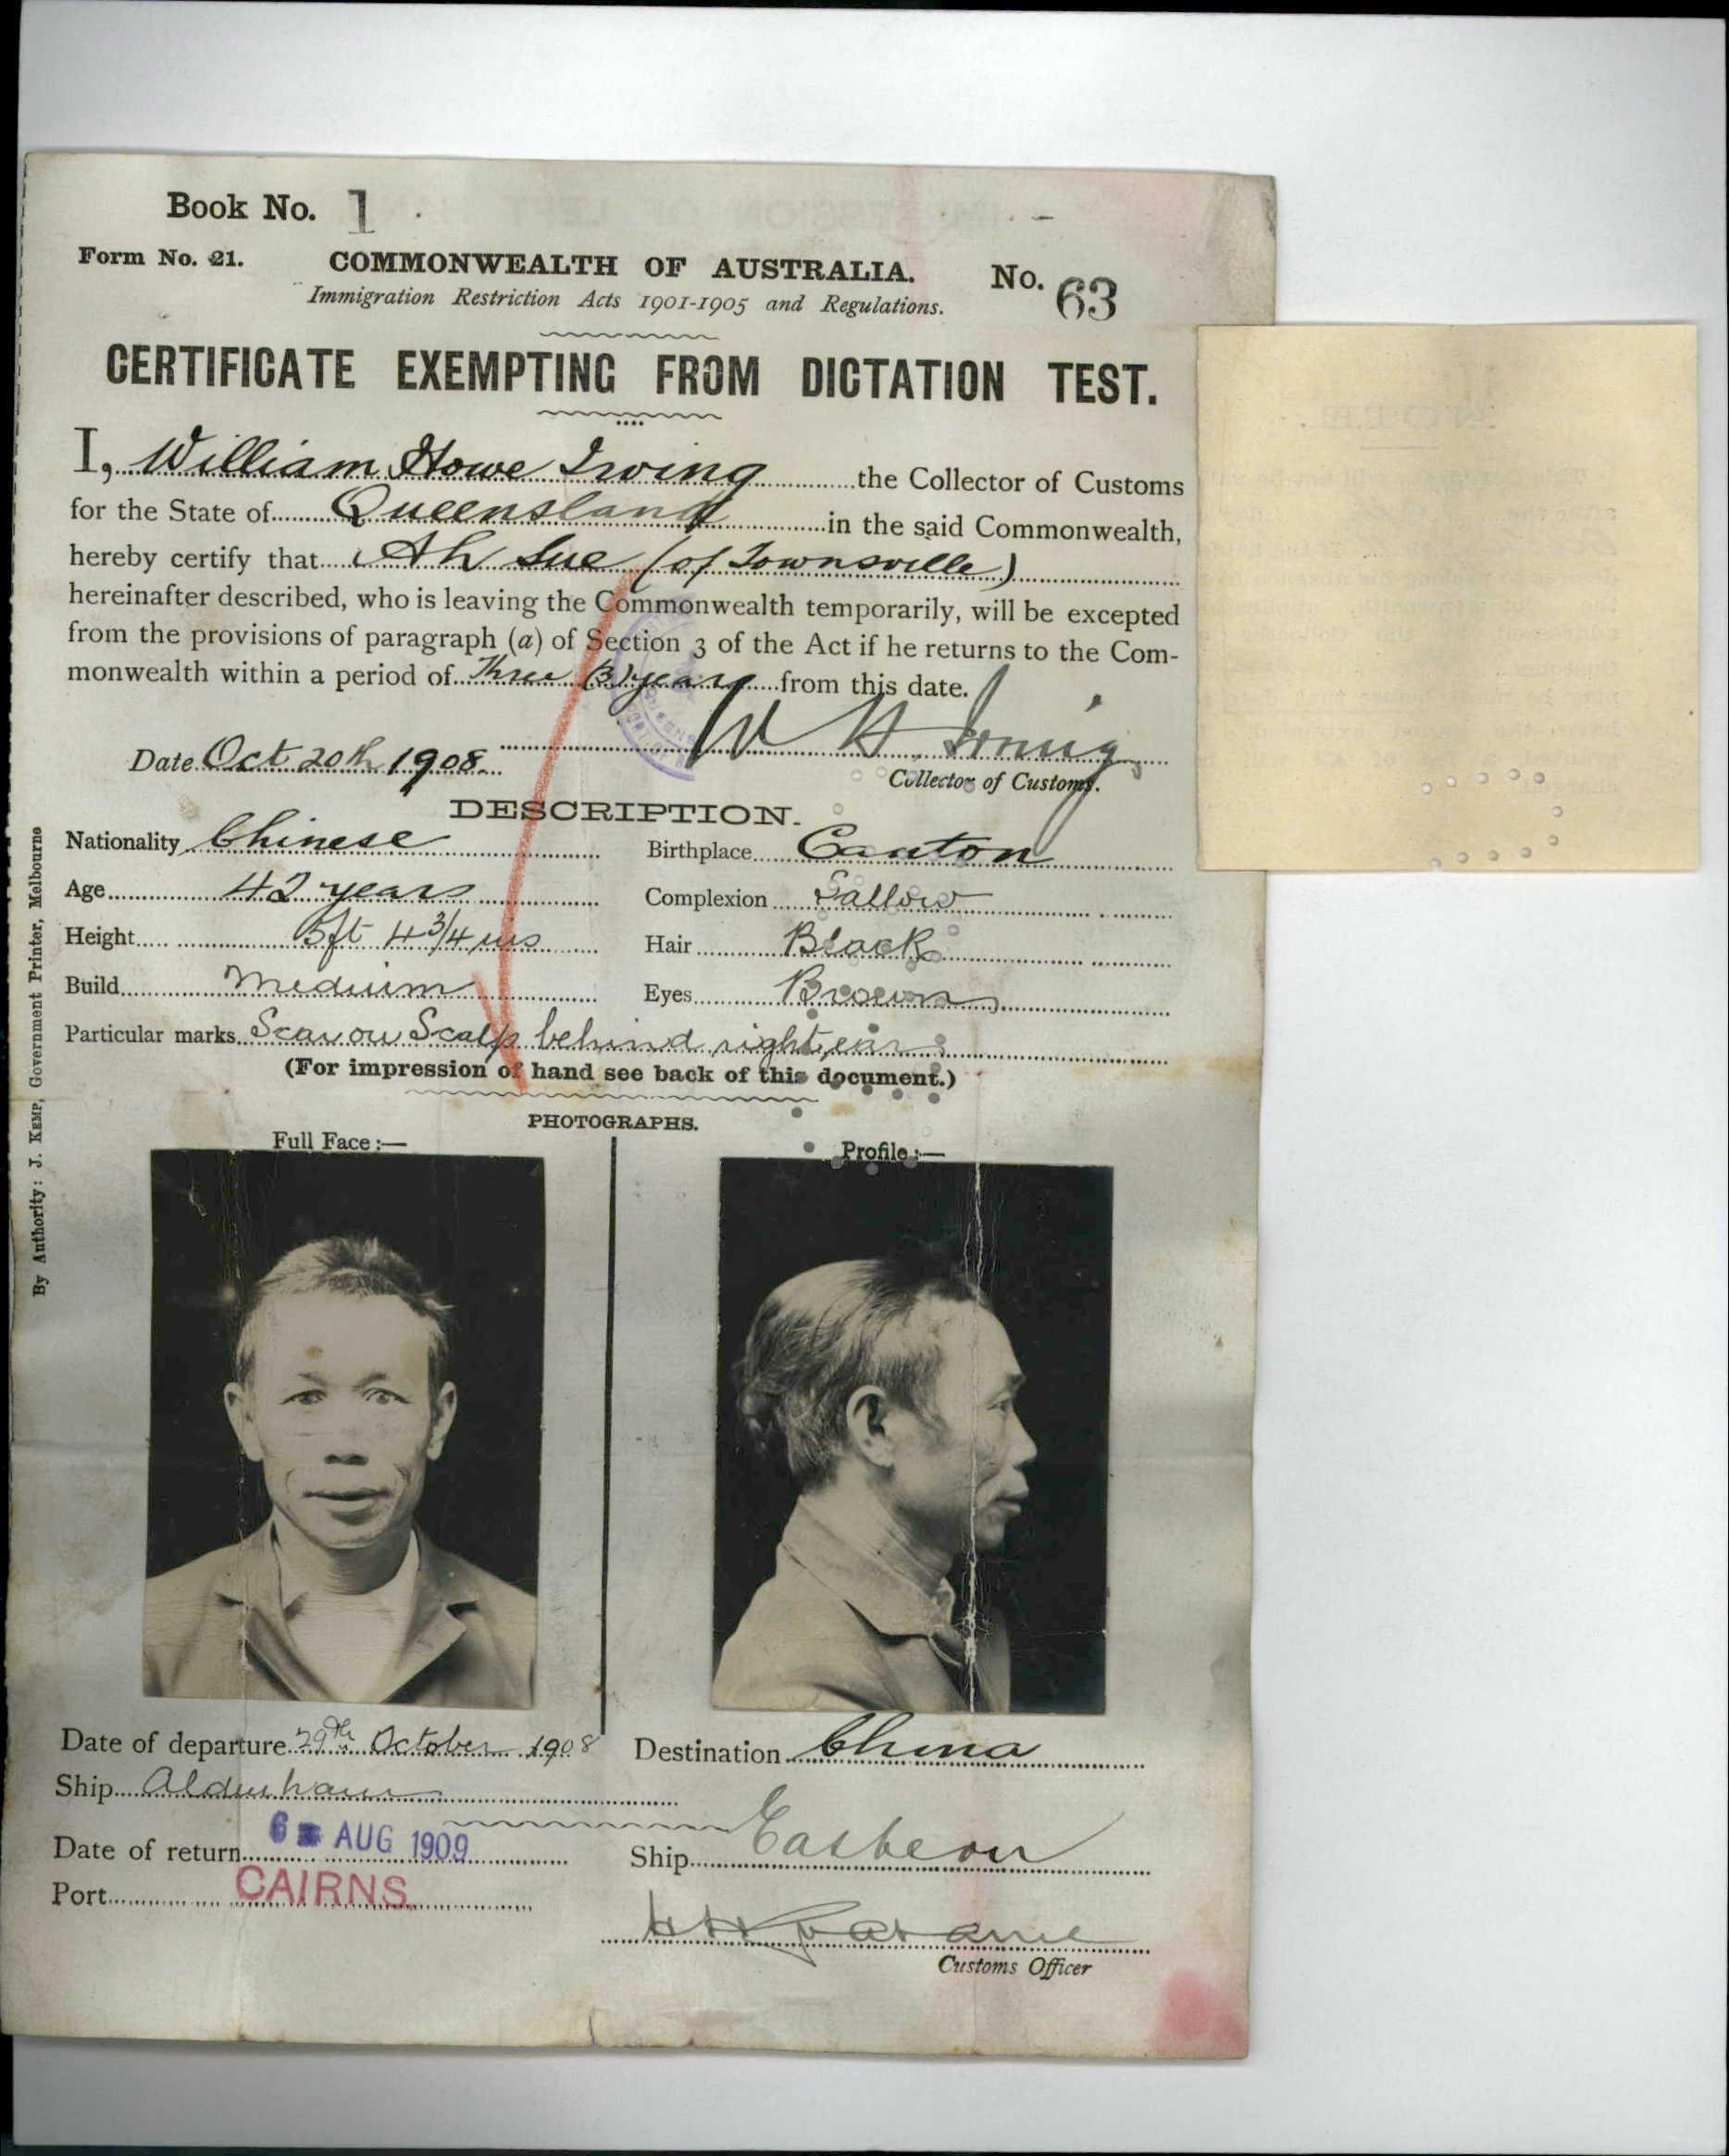 Book No. 1
Form No. 21.
COMMONWEALTH OF AUSTRALIA.
No. 63
Immigration Restriction Acts 1901-1905 and Regulations.
CERTIFICATE EXEMPTING FROM DICTATION TEST.
I, William Howe Irving the Collector of Customs
for the State of Queensland in the said Commonwealth,
hereby certify that Ah Sue (of Townsville)
hereinafter described, who is leaving the Commonwealth temporarily, will be excepted
from the provisions of paragraph (a) of Section 3 of the Act if he returns to the Com-
monwealth within a period of Three (3) years from this date.
W H Irving
Date Oct 20th 1908.
Collector of Customs.
DESCRIPTION.
Nationality Chinese Birthplace Canton
Age 42 years Complexion Sallow
Height 5ft 4 3/4 ins Hair Black
Build Medium Eyes Brown
Particular marks Scar on Scalp behind right ear
(For impression of hand see back of this document.)
PHOTOGRAPHS.
Full Face :— Profile :—
Date of departure 29th October 1908 Destination China
Ship Aldenham
Date of return 6 AUG 1909 Ship Eastern
Port CAIRNS
Customs Officer
By Authority: J. KEMP, Government Printer, Melbourne
NOTE.